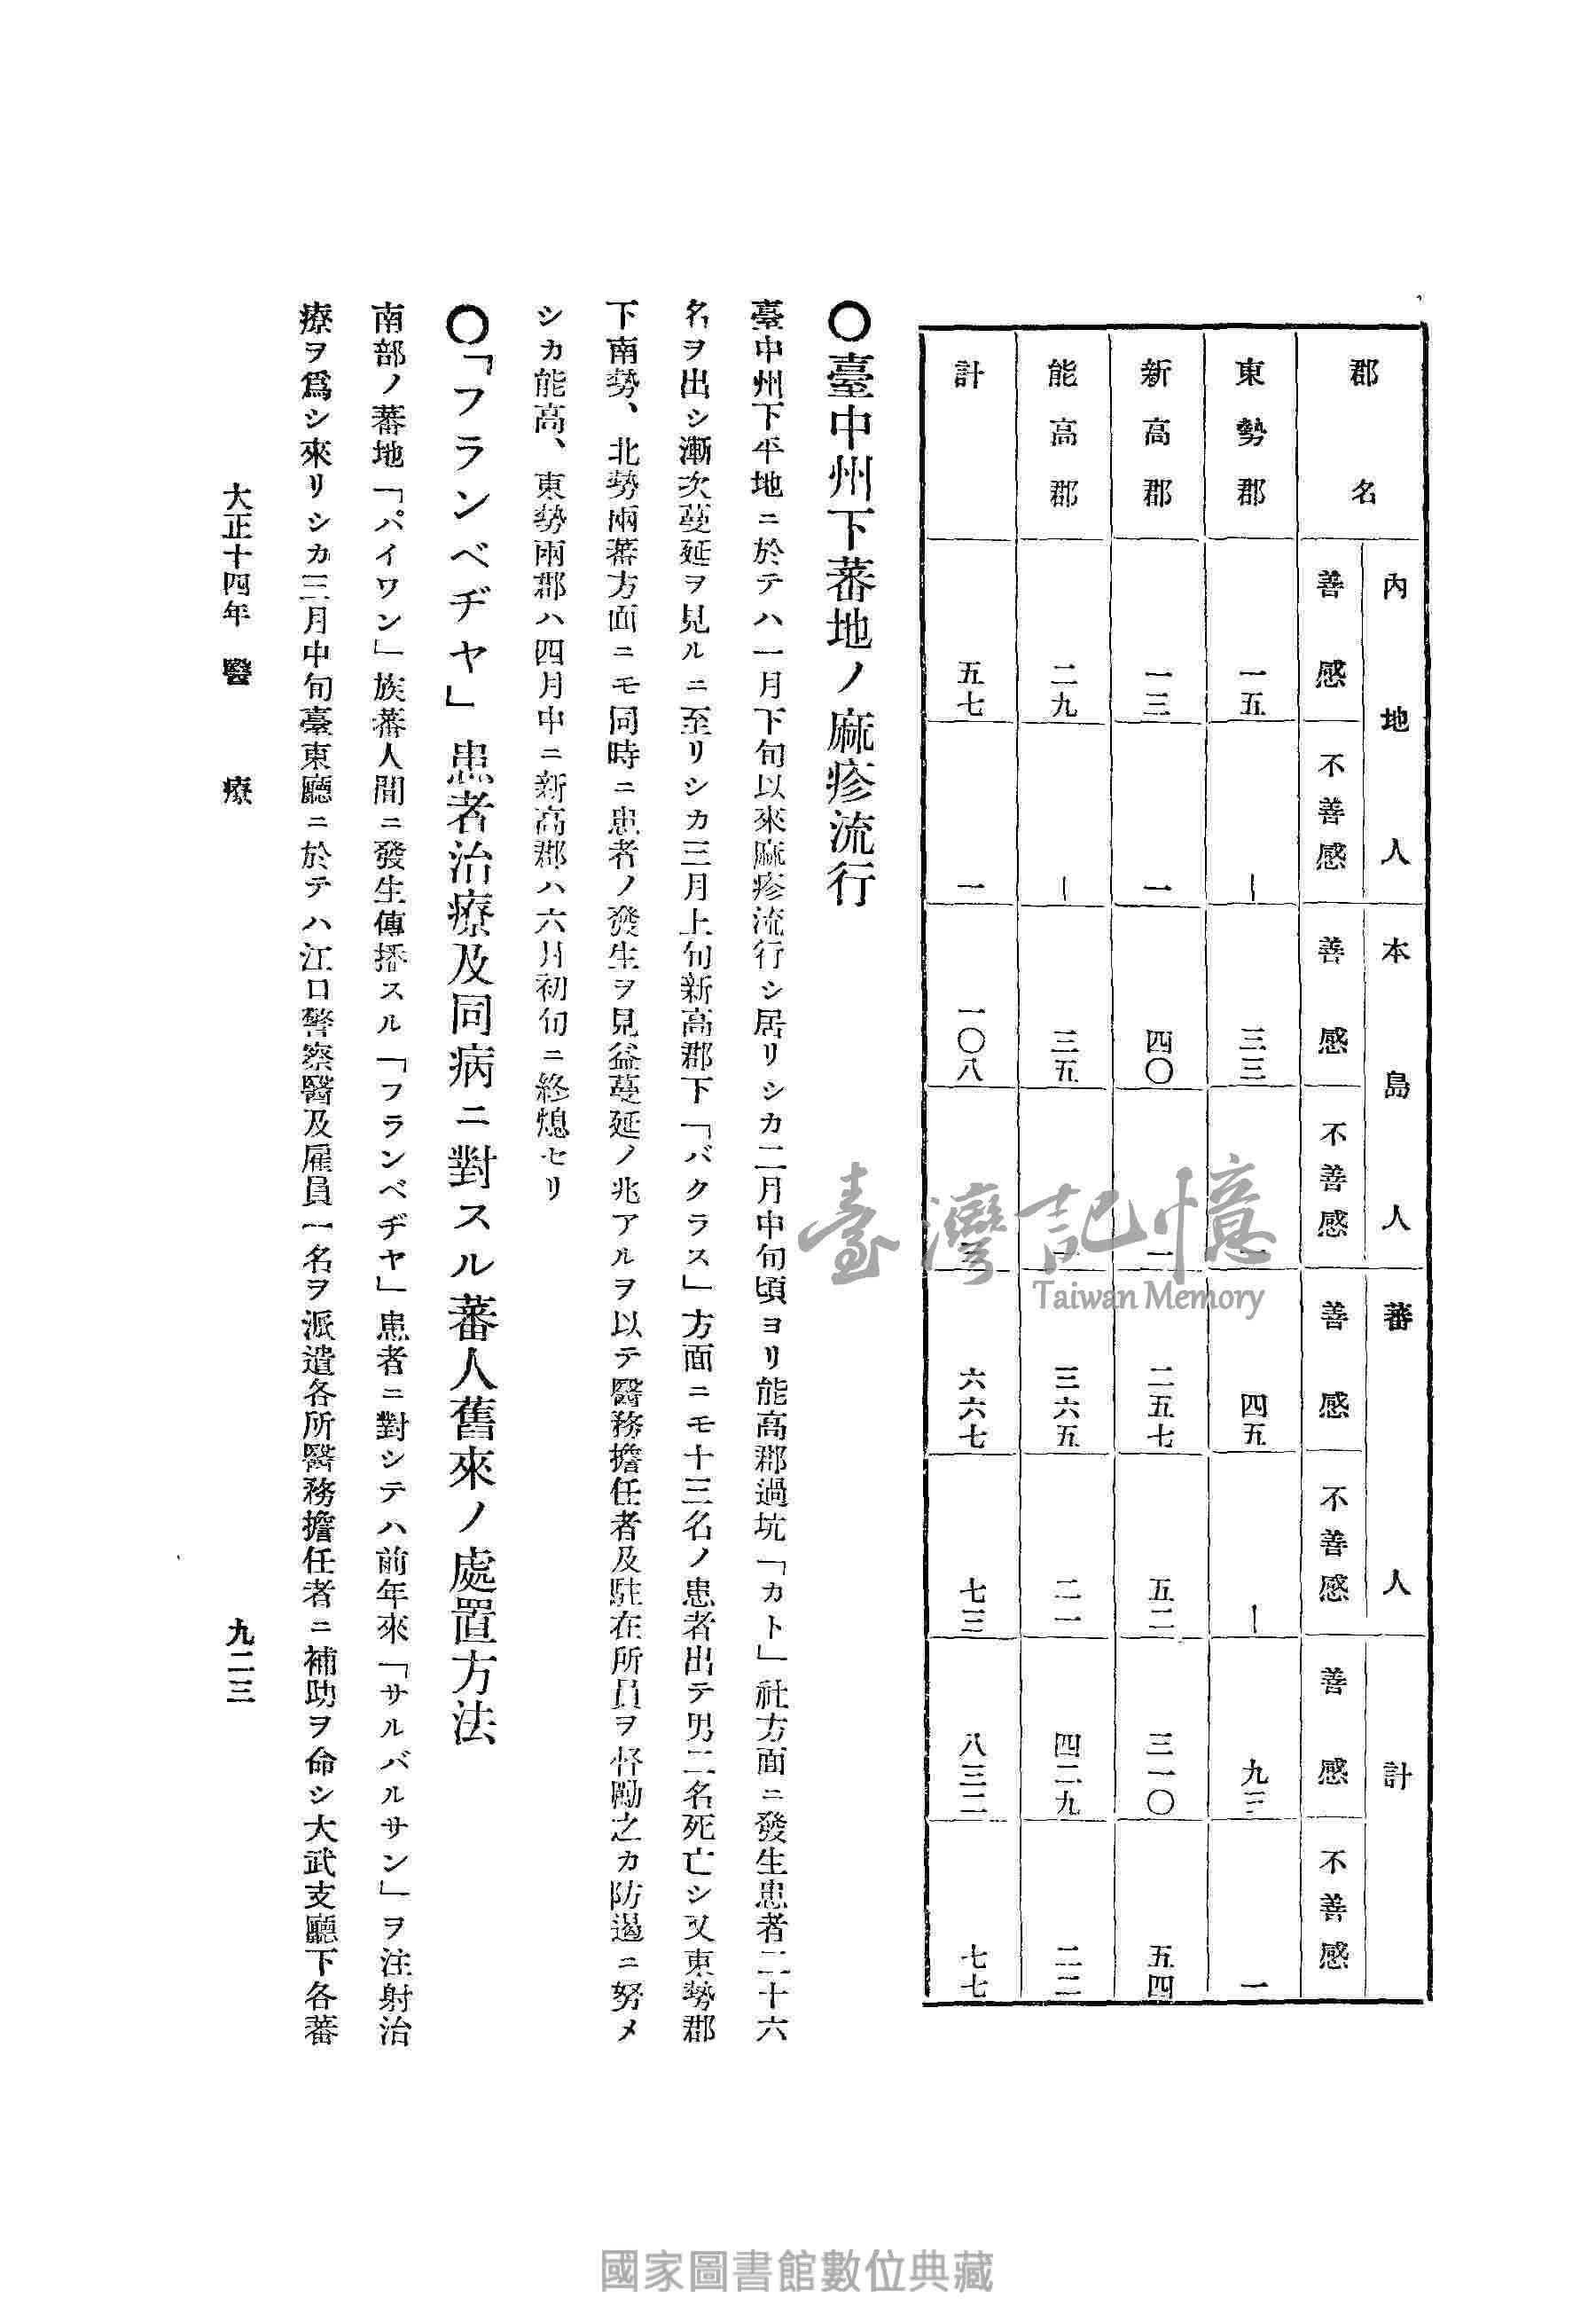 郡名 內地人 本島人 蕃人 計
善感 不善感 善感 不善感 善感 不善感 善感 不善感
東勢郡 一五 ー 三三 一 四五 ー 九三 一
新高郡 一三 一 四〇 一 二五七 五二 三一〇 五四
能高郡 二九 ー 三五 一 三六五 二一 四二九 二二
計 五七 一 一〇八 三 六六七 七三 八三二 七七
〇臺中州下蕃地ノ麻疹流行
臺中州下平地ニ於テハ一月下旬以來麻疹流行シ居リシカ二月中旬頃ヨリ能高郡過坑「カト」社方面ニ發生患者二十六
名ヲ出シ漸次蔓延ヲ見ルニ至リシカ三月上旬新高郡下「バクラス」方面ニモ十三名ノ患者出テ男二名死亡シ又東勢郡
下南勢、北勢兩蕃方面ニモ同時ニ患者ノ發生ヲ見益蔓延ノ兆アルヲ以テ醫務擔任者及駐在所員ヲ督勵之カ防遏ニ努メ
シカ能高、東勢兩郡ハ四月中ニ新高郡ハ六月初旬ニ終熄セリ
〇「フランベヂヤ」患者治療及同病ニ對スル蕃人舊來ノ處置方法
南部ノ蕃地「パイワン」族蕃人間ニ發生傳播スル「フランベヂヤ」患者ニ對シテハ前年來「サルバルサン」ヲ注射治
療ヲ爲シ來リシカ三月中旬臺東廳ニ於テハ江口警察醫及雇員一名ヲ派遣各所醫務擔任者ニ補助ヲ命シ大武支廳下各蕃
大正十四年 醫療 九二三
臺灣記憶
Taiwan Memory
國家圖書館數位典藏